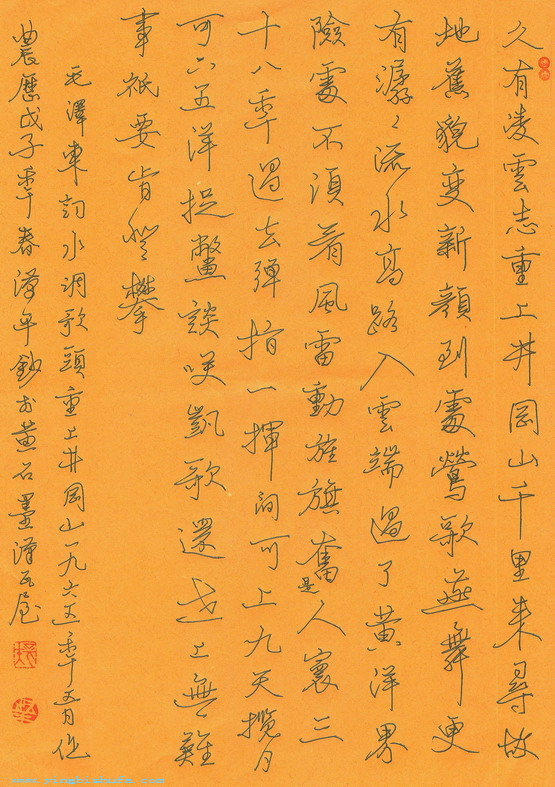 久有凌雲志重上井岡山千里来尋故
地舊貌變新顏到處鶯歌燕舞更
有潺〻流水高路入雲端過了黄洋界
險處不須看風雷動旌旗奮是人寰三
十八年過去彈指一揮間可上九天攬月
可下五洋捉鱉談笑凱歌還世上無難
事祇要肯登攀
毛澤東詞水調歌頭重上井岡山一九六五年五月作
農歷戊子年春漢年鈔於黄石墨漢瓦屋